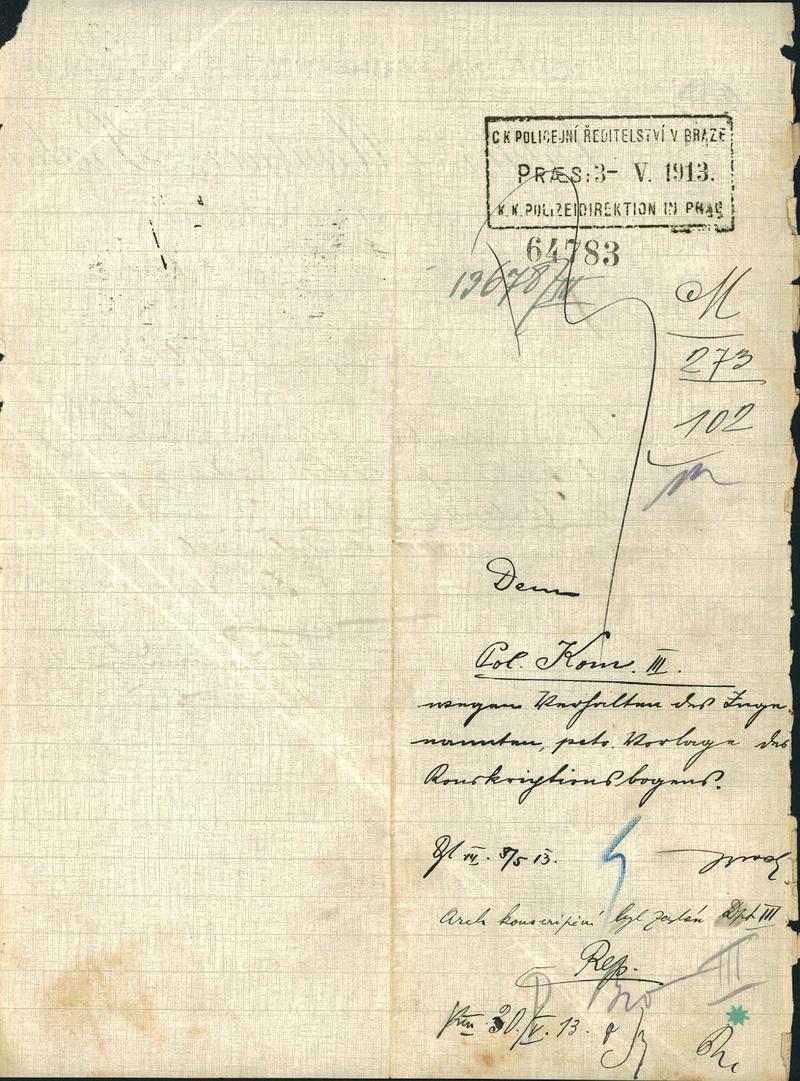 C K POLICEJNÍ ŘEDITELSTVÍ V PRAZE
PRÆS: 3- V. 1913.
K. K. POLIZEIDIREKTION IN PRAG
64783
13678/III
M
273
102
Dem
Pol. Kom. III.
wegen Verhalten des Inge-
nannten, pcto. Vorlage des
Konskriptionsbogens.
8/5 13.
Arch konscripční byl zaslán Dpt III
Rep.
III
30/V. 13.